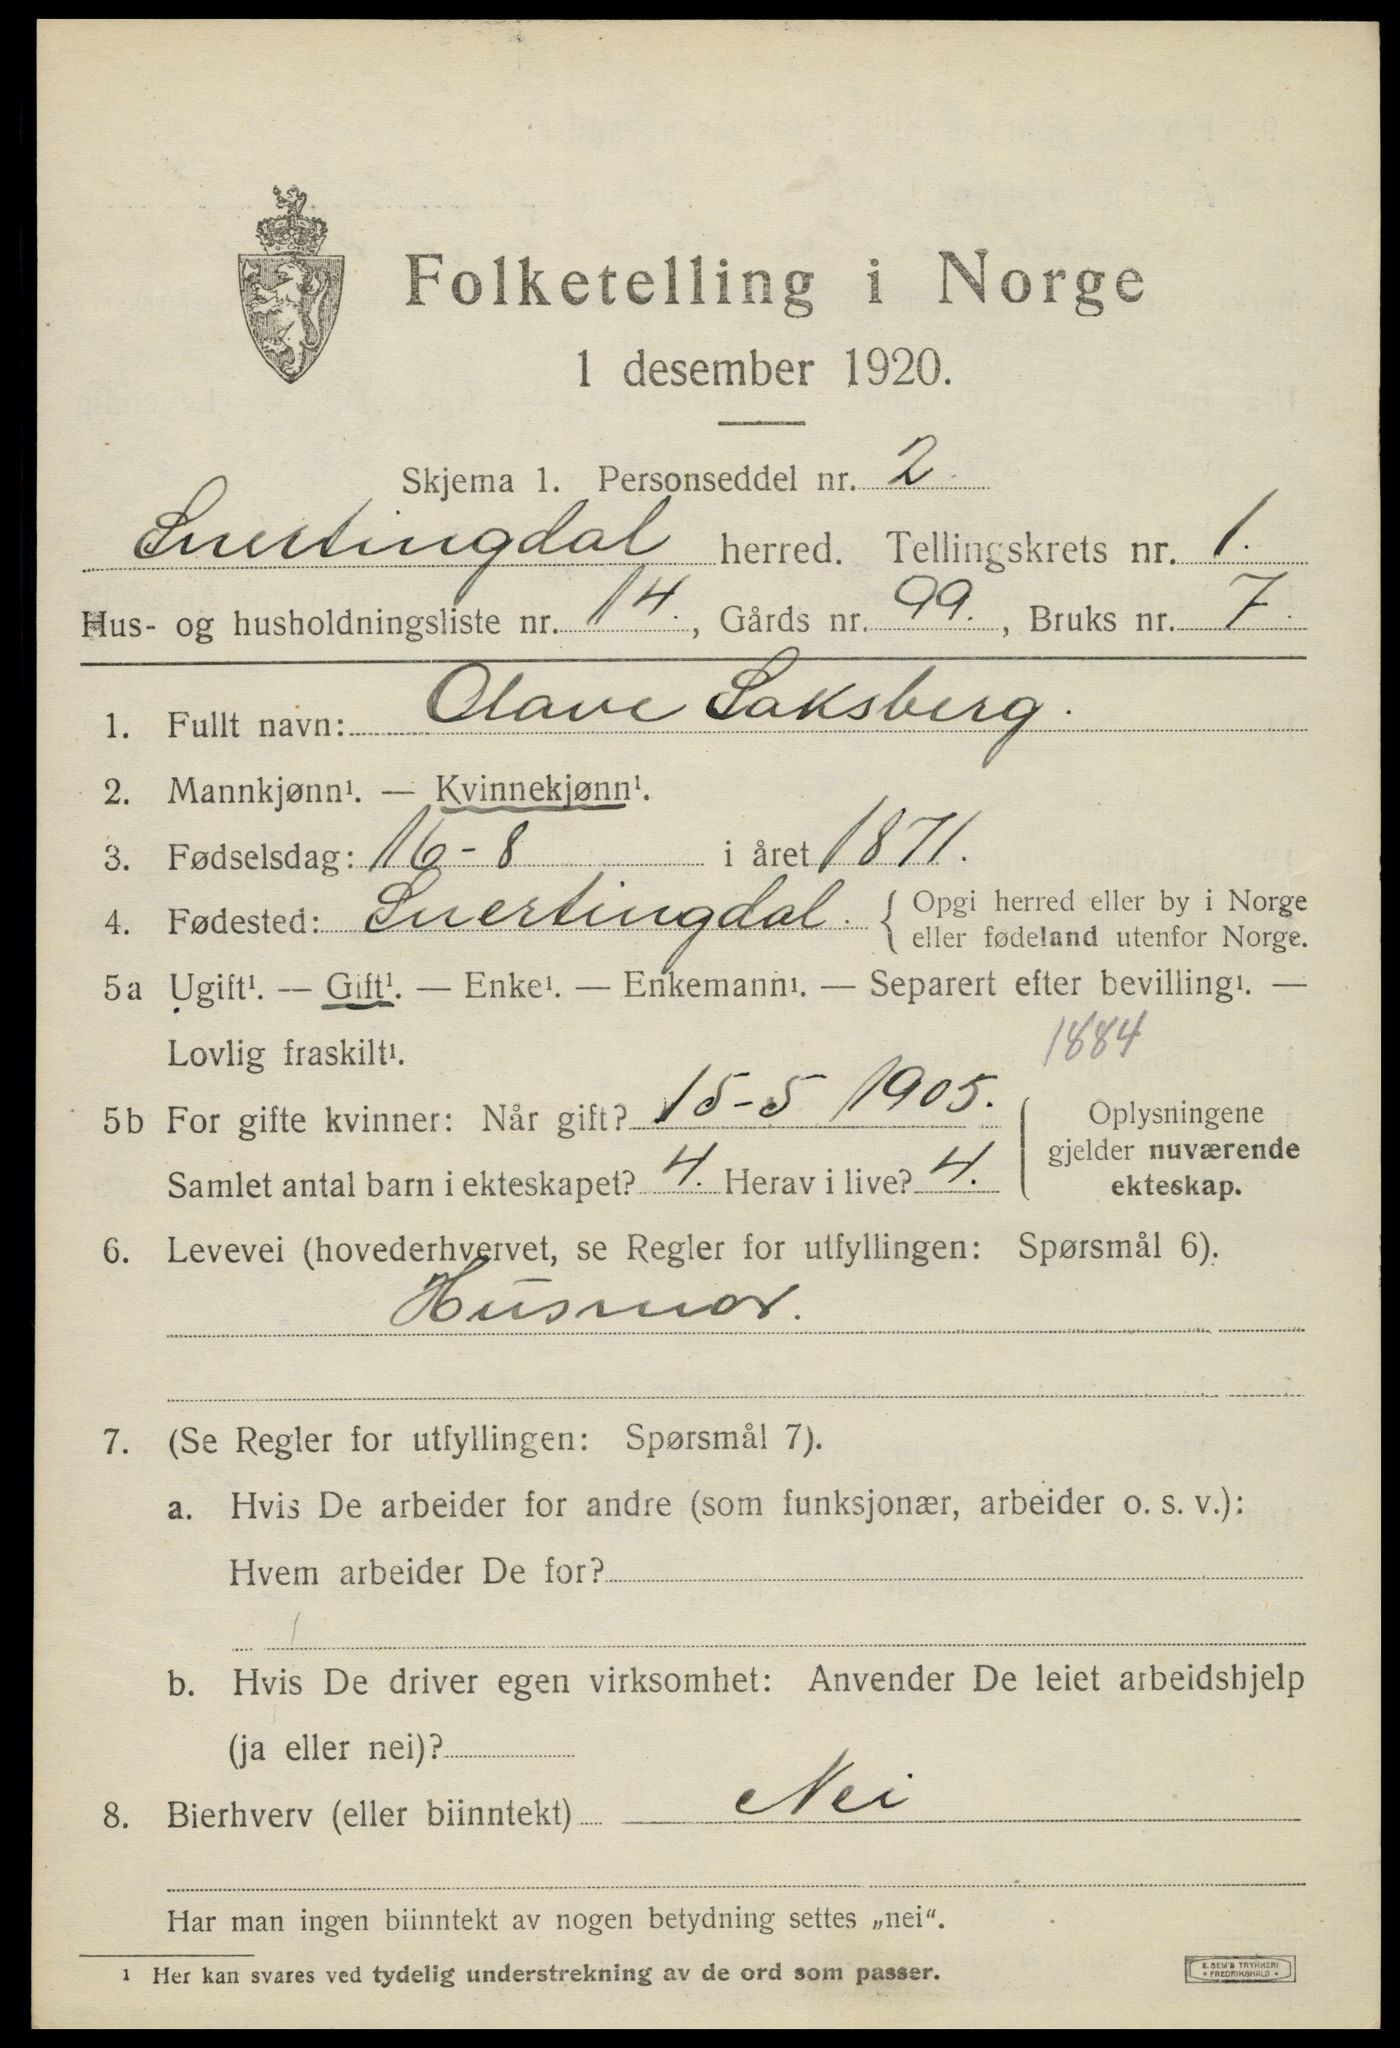 Folketelling i Norge
1 desember 1920.
Skjema 1. Personseddel nr. 2
Snertingdal herred. Tellingskrets nr. 1.
Hus- og husholdningsliste nr. 14., Gårds nr. 99., Bruks nr. 7.
1. Fullt navn: Olave Saksberg.
2. Mannkjønn¹. — Kvinnekjønn¹.
3. Fødselsdag: 16-8 i året 1871.
4. Fødested: Snertingdal. { Opgi herred eller by i Norge
eller fødeland utenfor Norge.
5a Ugift¹. — Gift¹. — Enke¹. — Enkemann¹. — Separert efter bevilling¹. —
Lovlig fraskilt¹.
1884
5b For gifte kvinner: Når gift? 15-5 1905.
Samlet antal barn i ekteskapet? 4. Herav i live? 4.
Oplysningene
gjelder nuværende
ekteskap.
6. Levevei (hovederhvervet, se Regler for utfyllingen: Spørsmål 6).
Husmor.
7. (Se Regler for utfyllingen: Spørsmål 7).
a. Hvis De arbeider for andre (som funksjonær, arbeider o. s. v.):
Hvem arbeider De for?
b. Hvis De driver egen virksomhet: Anvender De leiet arbeidshjelp
(ja eller nei)?
8. Bierhverv (eller biinntekt) Nei
Har man ingen biinntekt av nogen betydning settes „nei“.
1 Her kan svares ved tydelig understrekning av de ord som passer.
E. SEM'S TRYKKERI
* FREDRIKSHALD *